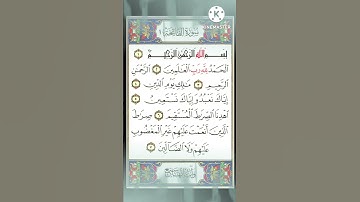 KINEMASTER
سورة الفاتحة
بِسْمِ اللَّهِ الرَّحْمَٰنِ الرَّحِيمِ ١
الْحَمْدُ لِلَّهِ رَبِّ الْعَالَمِينَ ٢ الرَّحْمَٰنِ
الرَّحِيمِ ٣ مَالِكِ يَوْمِ الدِّينِ ٤
إِيَّاكَ نَعْبُدُ وَإِيَّاكَ نَسْتَعِينُ ٥
اهْدِنَا الصِّرَاطَ الْمُسْتَقِيمَ ٦ صِرَاطَ
الَّذِينَ أَنْعَمْتَ عَلَيْهِمْ غَيْرِ الْمَغْضُوبِ
عَلَيْهِمْ وَلَا الضَّالِّينَ ٧